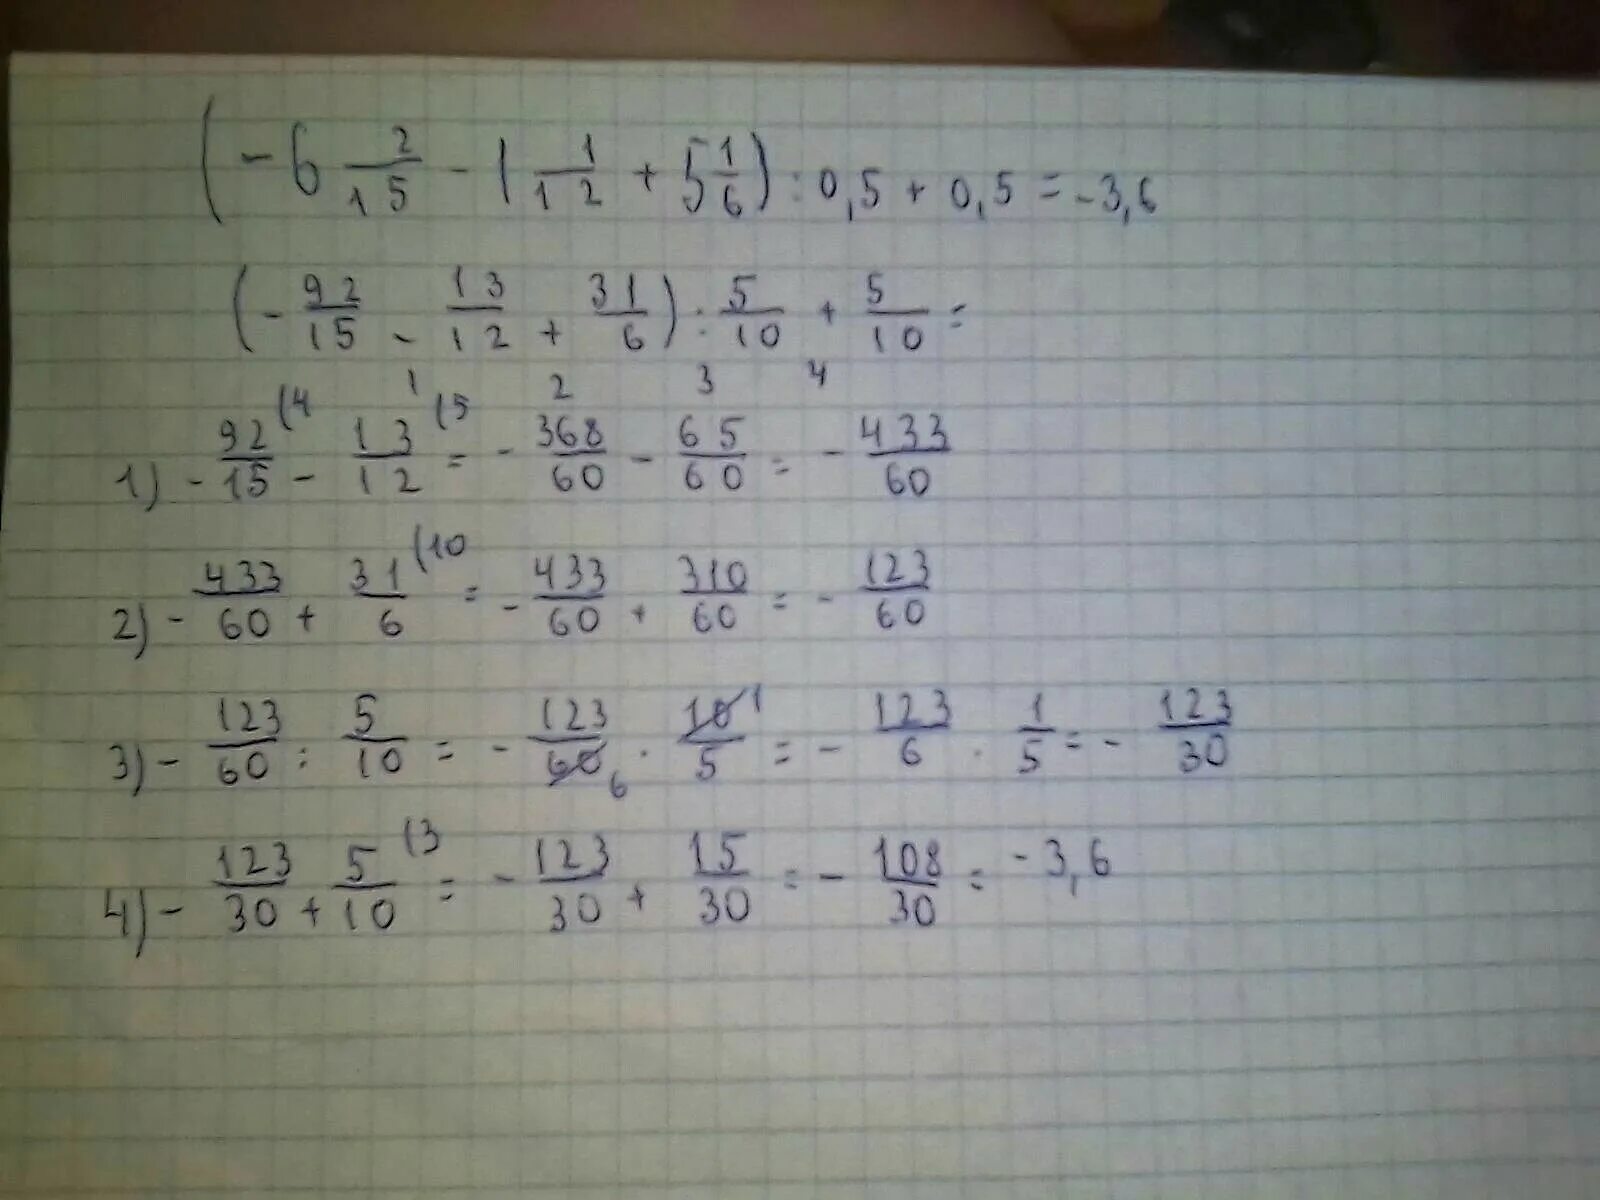 (-6 2/15 - 1 1/12 + 5 1/6) : 0,5 + 0,5 = -3,6
(- 92/15 - 13/12 + 31/6) : 5/10 + 5/10 =
1 2 3 4
1) - 92/15 (4 - 13/12 (5 = - 368/60 - 65/60 = - 433/60
2) - 433/60 + 31/6 (10 = - 433/60 + 310/60 = - 123/60
3) - 123/60 : 5/10 = - 123/60 6 · 10 1/5 = - 123/6 · 1/5 = - 123/30
4) - 123/30 + 5/10 (3 = - 123/30 + 15/30 = - 108/30 = -3,6